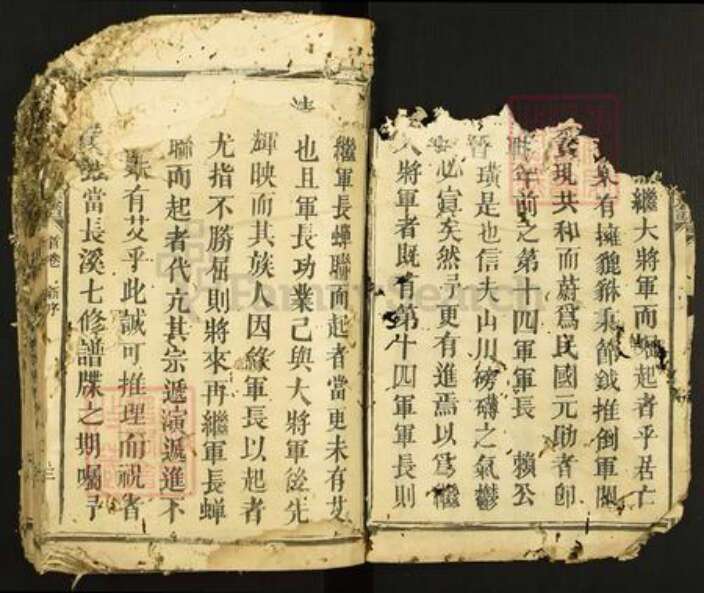 繼大將軍而崛起者乎居亡
果有擁貔貅秉節鉞推倒軍閥
發現共和而蔚爲民國元勛者卽
昨年前之第十四軍軍長 賴公
晉璜是也信夫山川磅礴之氣鬱
必宣矣然尋更有進焉以爲繼
大將軍者既有第十四軍軍長則
繼軍長蟬聯而起者當更未有艾
也且軍長功業已與大將軍後先
輝映而其族人因緣軍長以起者
尤指不勝屈則將來再繼軍長蟬
聯而起者代充其宗遞演遞進不
有艾乎此誠可推理而祝者
當長溪七修譜牒之期囑予
首卷 新序